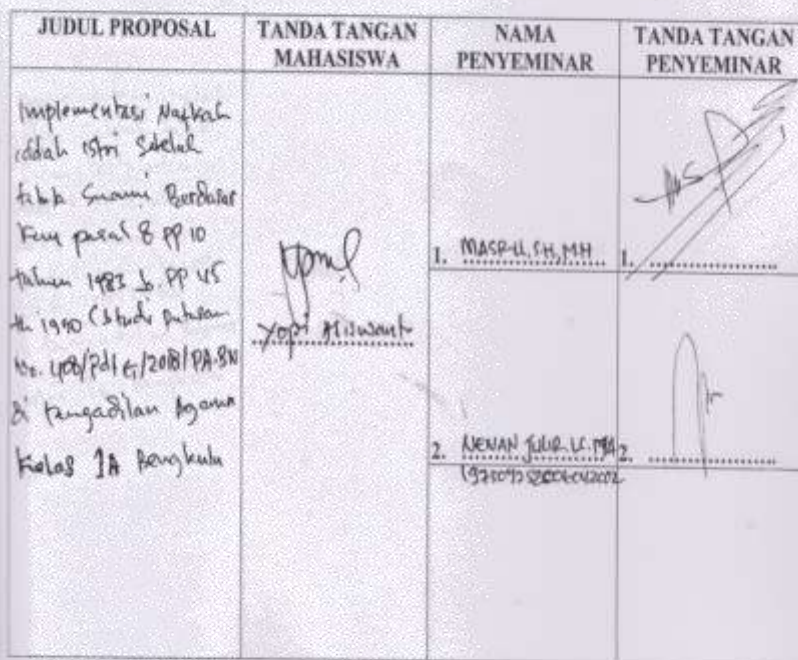 JUDUL PROPOSAL
TANDA TANGAN
MAHASISWA
NAMA
PENYEMINAR
TANDA TANGAN
PENYEMINAR
Implementasi Nafkah
iddah istri Setelah
talak Suami Berdasar
Kan pasal 8 PP 10
tahun 1983 Jo. PP 45
th 1990 (Studi Putusan
No. 408/Pdt G/2018/PA.BN
di Pengadilan Agama
Kelas 1A Bengkulu
Yopi Miswanto
1. MASRIL, SH, MH
1.
2. NENAN JULIR, LC, MA
2.